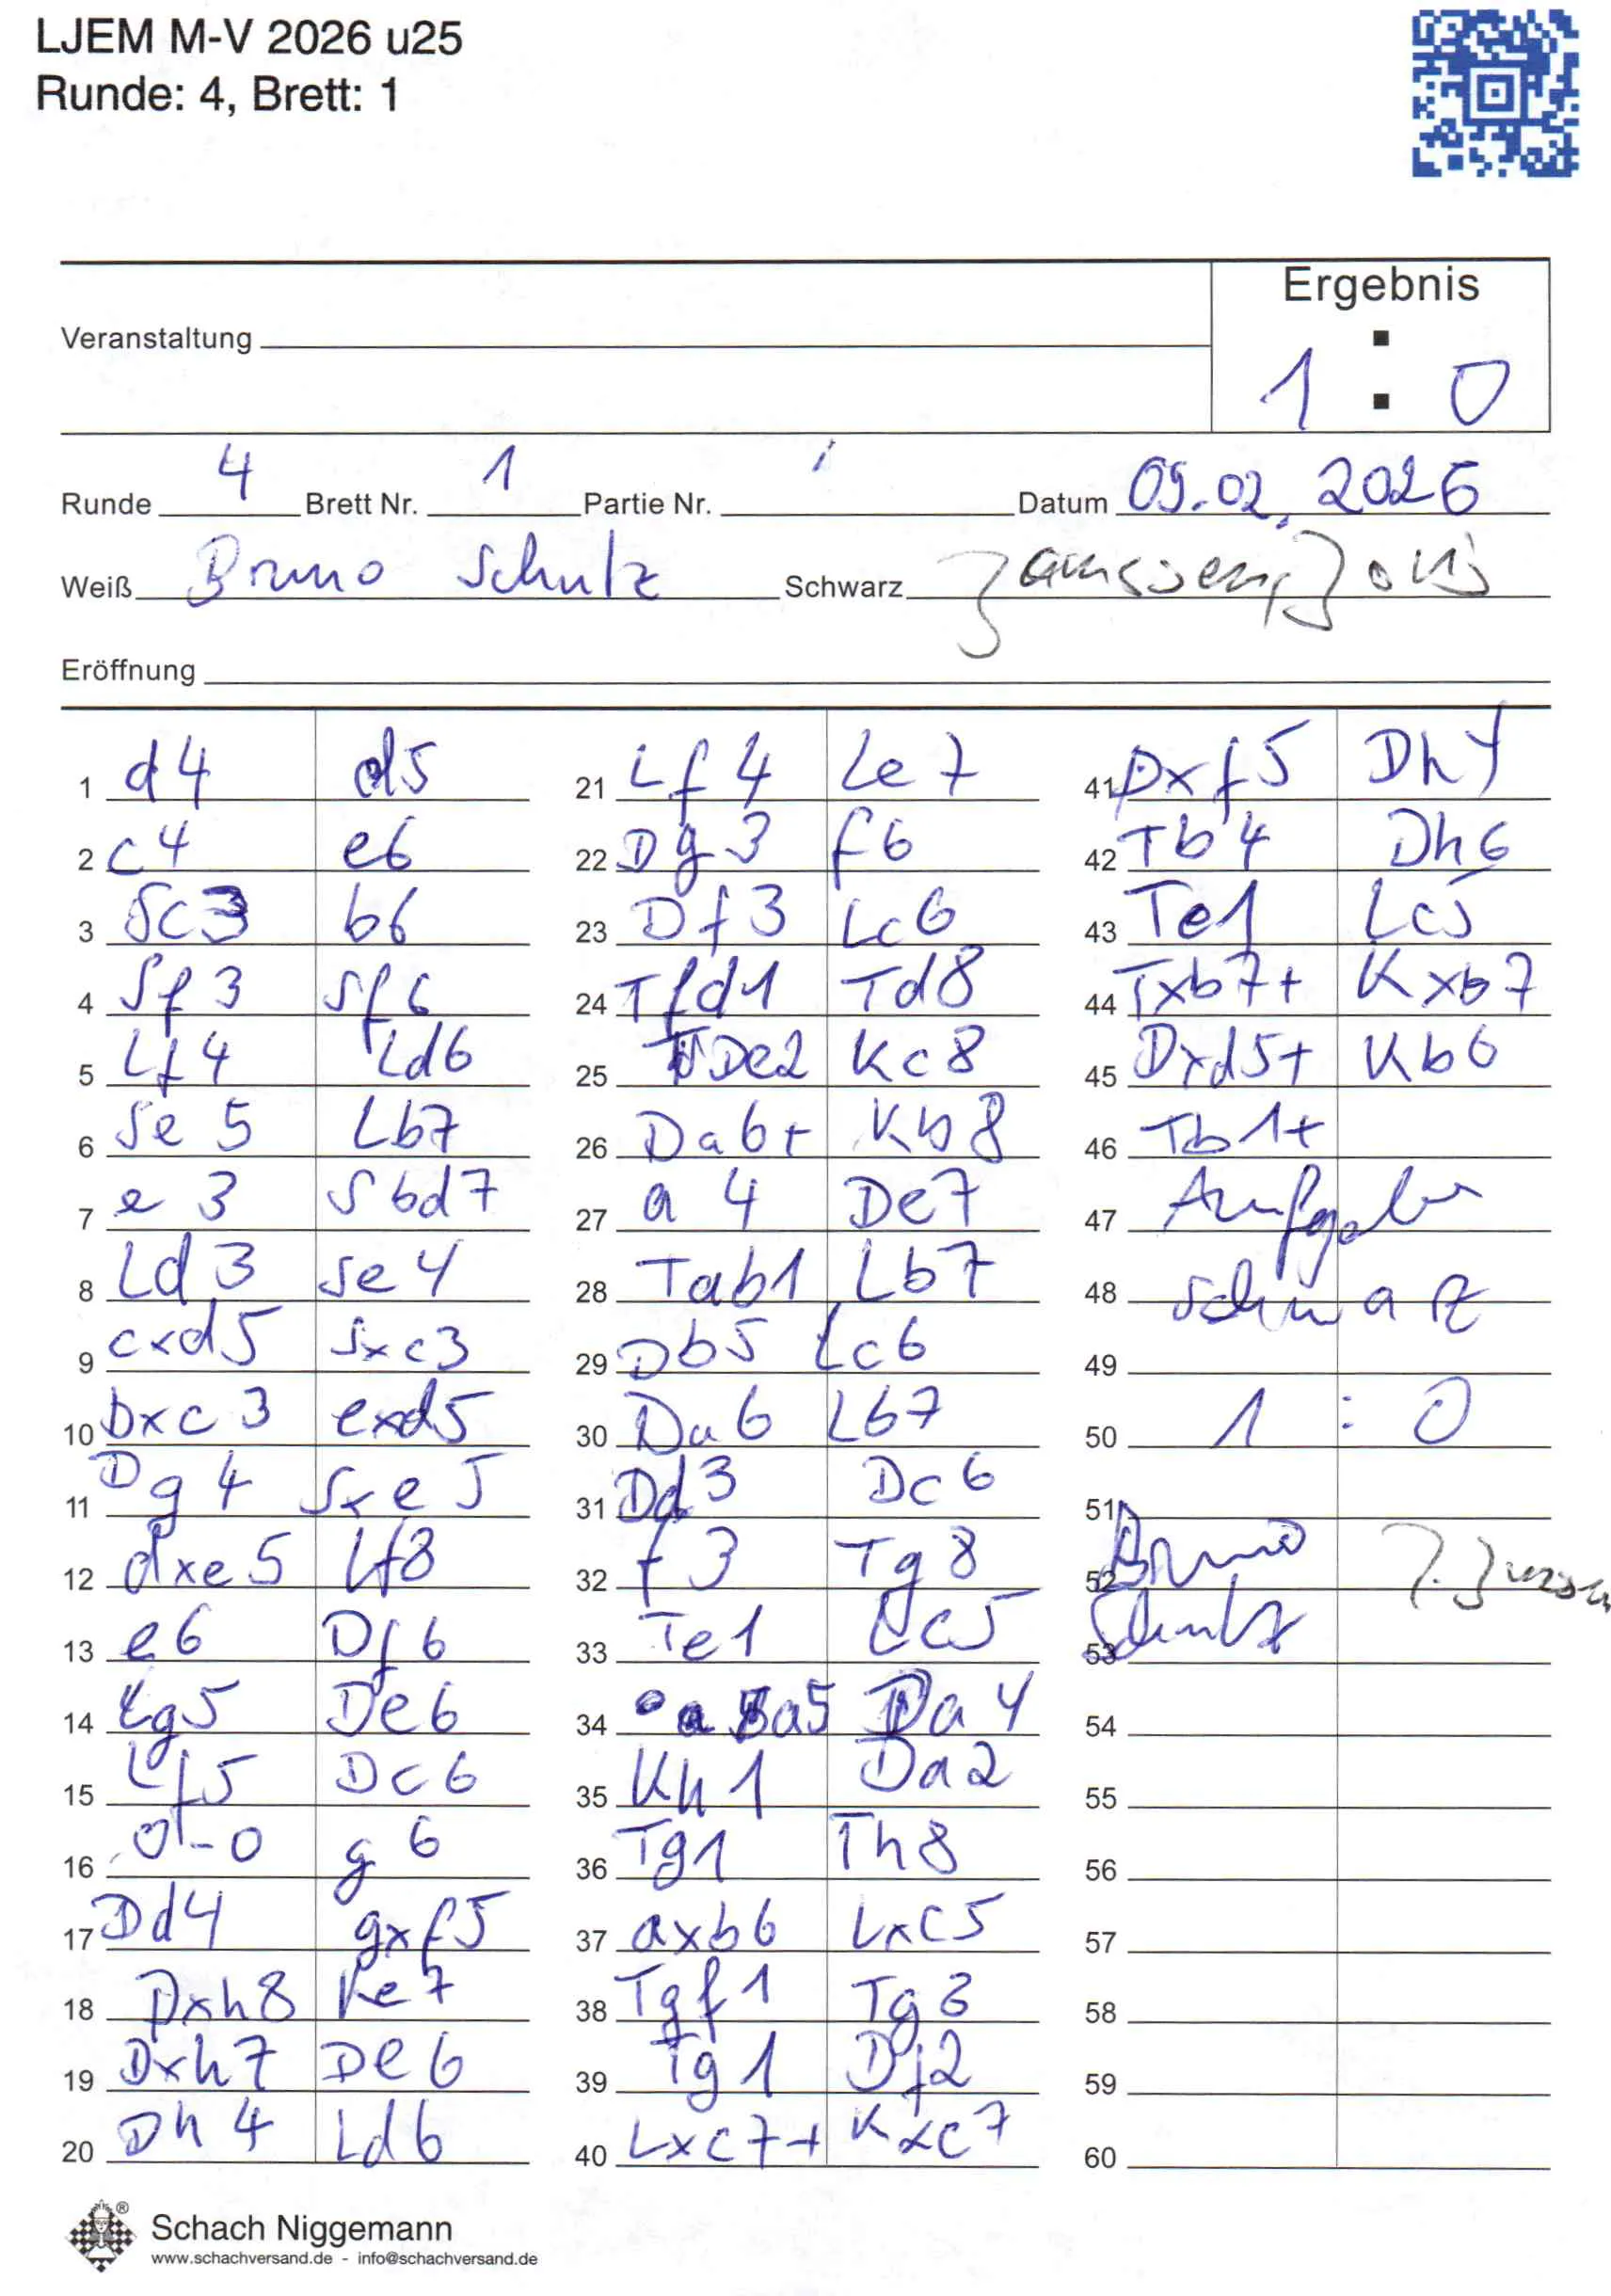 LJEM M-V 2026 u25
Runde: 4, Brett: 1
Ergebnis
Veranstaltung
1 : 0
Runde 4 Brett Nr. 1 Partie Nr. Datum 09.02.2026
Weiß Bruno Schulz Schwarz Janssen, Joris
Eröffnung
1 d4 d5
2 c4 e6
3 Sc3 b6
4 Sf3 Sf6
5 Lf4 Ld6
6 Se5 Lb7
7 e3 Sbd7
8 Ld3 Se4
9 cxd5 Sxc3
10 bxc3 exd5
11 Dg4 Sxe5
12 dxe5 Lf8
13 e6 Df6
14 Lg5 De6
15 Lf5 Dc6
16 0-0 g6
17 Dd4 gxf5
18 Dxh8 Ke7
19 Dxh7 De6
20 Dh4 Ld6
21 Lf4 Le7
22 Dg3 f6
23 Df3 Lc6
24 Tfd1 Td8
25 De2 Kc8
26 Da6+ Kb8
27 a4 De7
28 Tab1 Lb7
29 Db5 Lc6
30 Da6 Lb7
31 Dd3 Dc6
32 f3 Tg8
33 Te1 Lc5
34 a5 Da4
35 Kh1 Da2
36 Tg1 Th8
37 axb6 Lxc5
38 Tgf1 Tg8
39 Tg1 Df2
40 Lxc7+ Kxc7
41 Dxf5 Dh4
42 Tb4 Dh6
43 Te1 Lc5
44 Txb7+ Kxb7
45 Dxd5+ Kb6
46 Tb1+
47 Aufgabe
48 Schwarz
49
50 1 : 0
51
52 Bruno
53 Schulz
54
55
56
57
58
59
60
Schach Niggemann
www.schachversand.de - info@schachversand.de